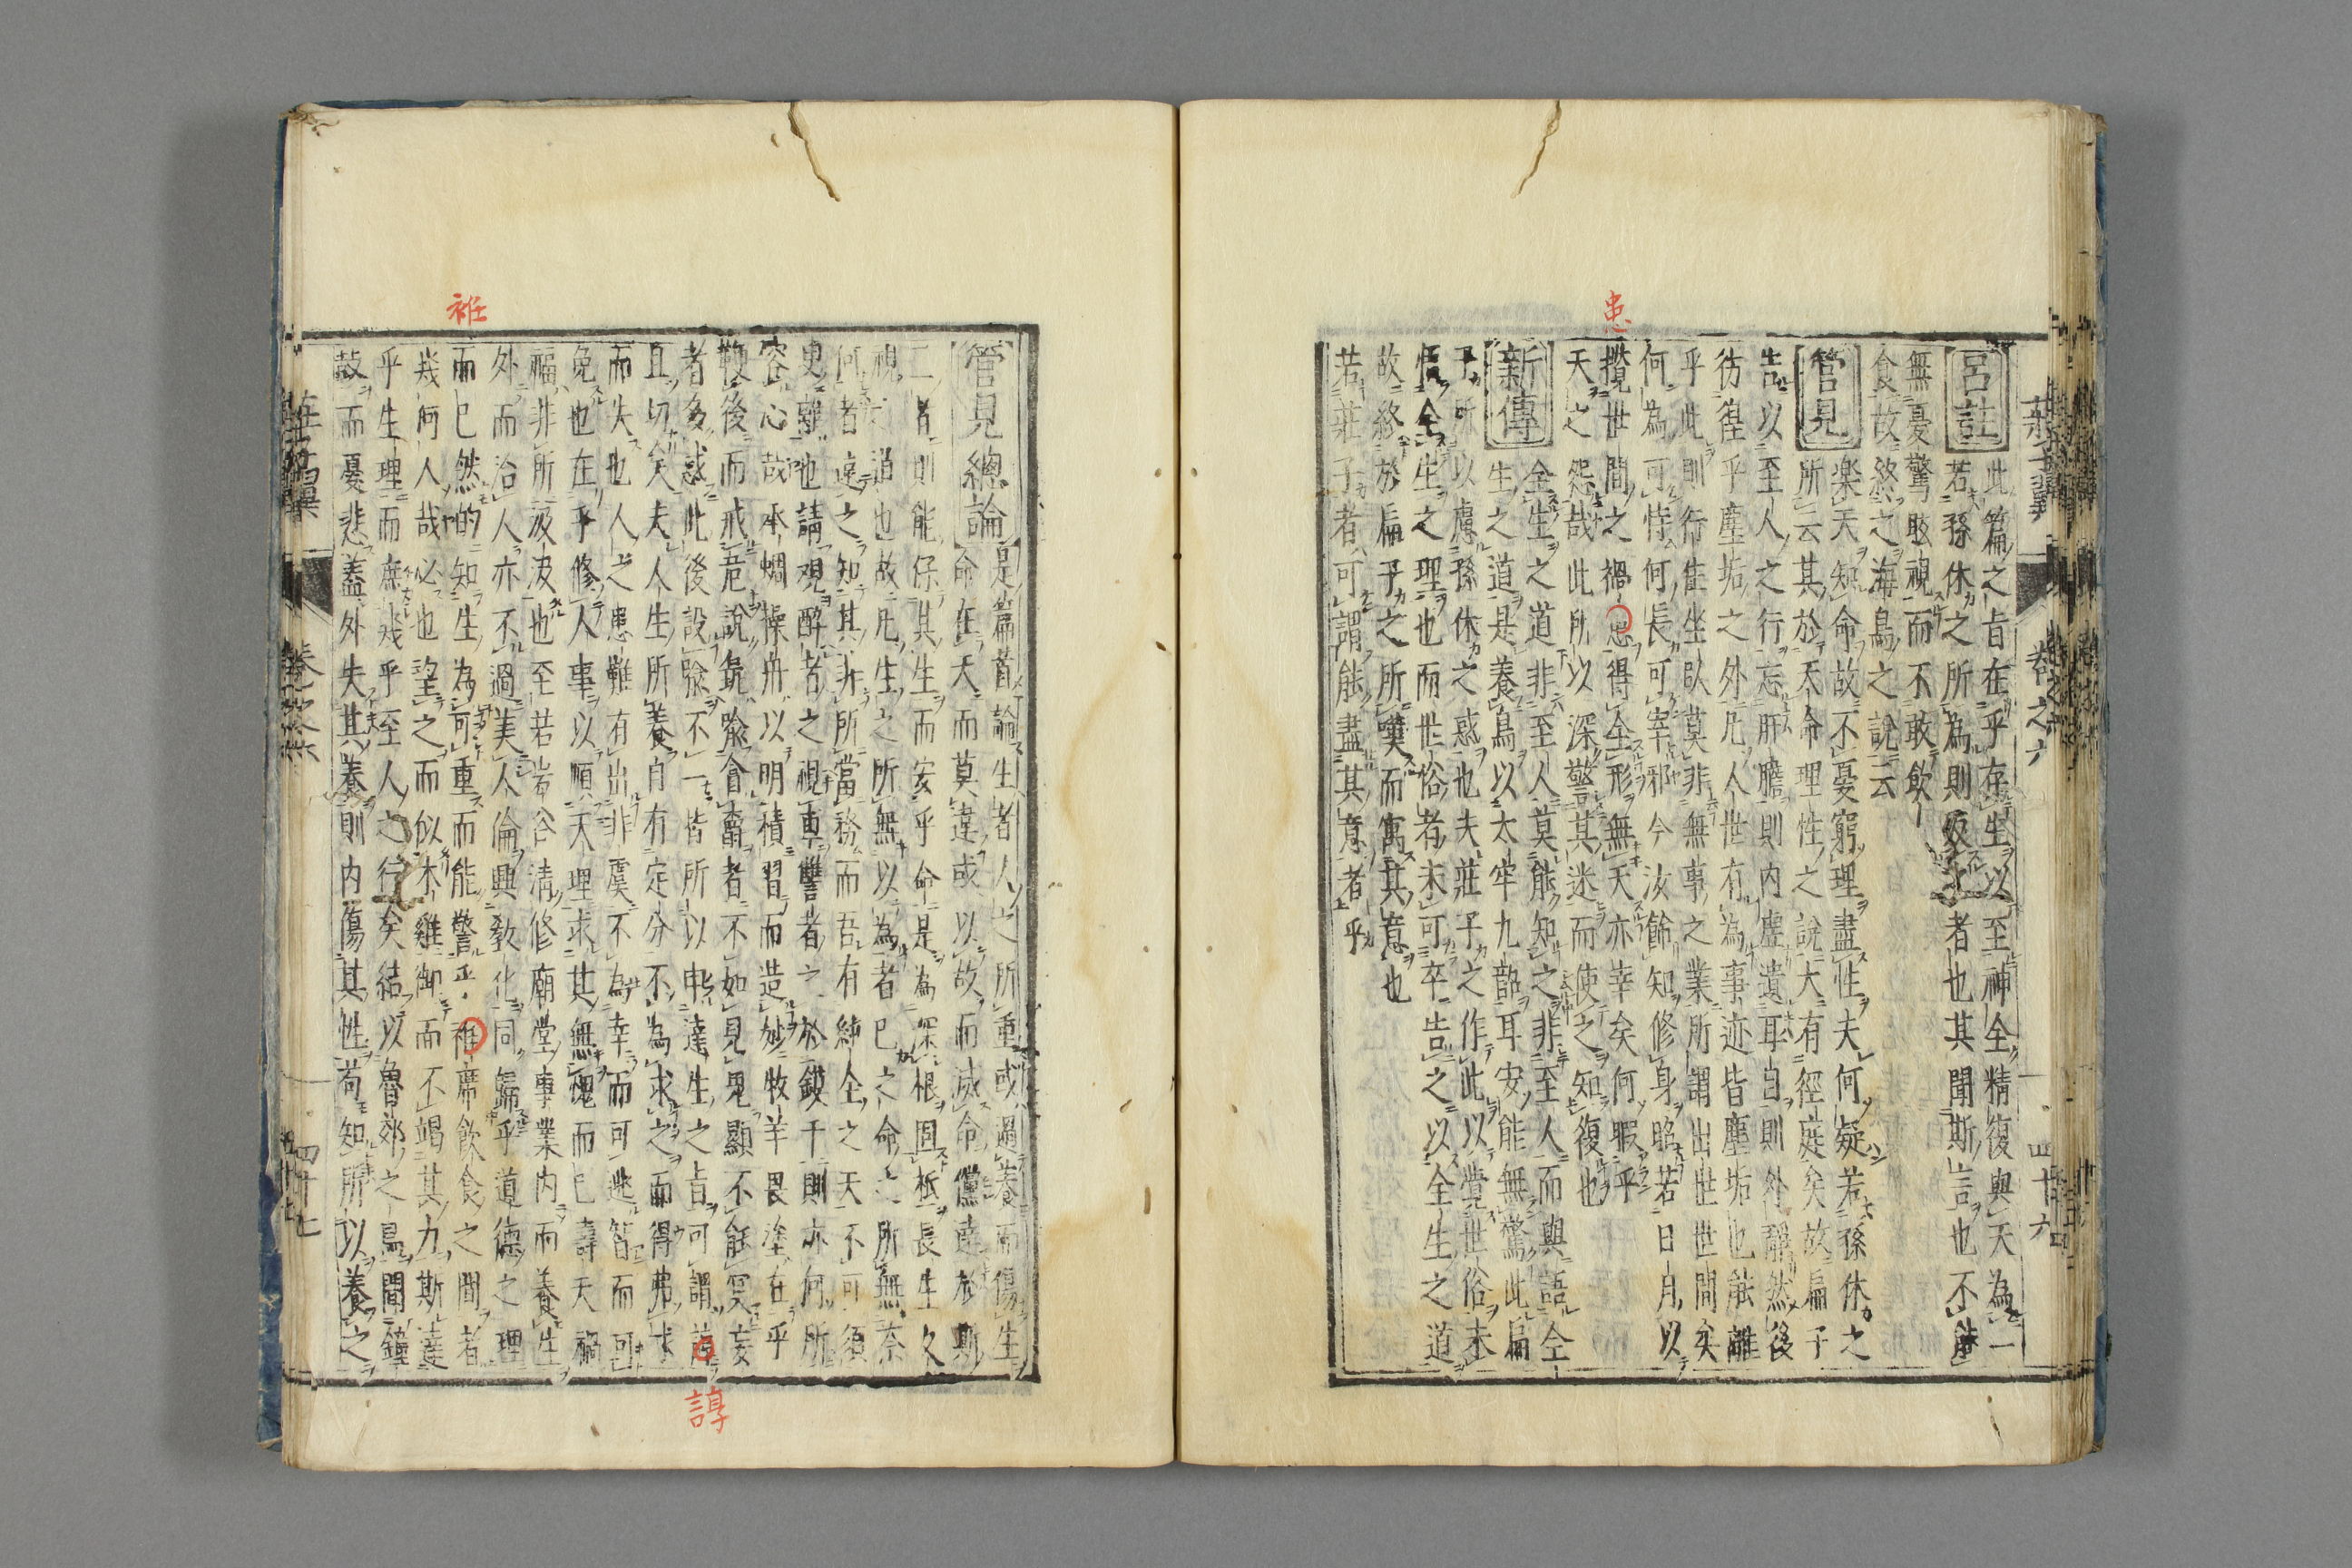 患
莊子翼
卷之六
四十六
呂註
此篇之旨在乎存生以至神全精復與天為一
若孫休之所為則反之者也其聞斯言也不能
無憂驚眩視而不敢飲
食故終之海鳥之說云
管見
樂天知命故不憂窮理盡性夫何疑若孫休之
所云其於天命理性之說大有徑庭矣故扁子
告以至人之行忘肝膽則內虛遺耳目則外靜然後
彷徨乎塵垢之外凡人世有為事迹皆塵垢也能離
乎此則行住坐臥莫非無事之業所謂出世世間矣
何為可恃何長可宰邪今汝飾知修身昭若日月以
攬世間之禍患得全形無夭亦幸矣何暇乎
天之怨哉此所以深警其迷而使之知復也
新傳
全生之道非至人莫能知之非至人而與語全
生之道是養鳥以太牢九韶耳安能無驚此扁
子所以慮孫休之惑也夫莊子之作此以覺世俗未
悟全生之理也而世俗者未可卒告之以全生之道
故終於扁子之所嘆而寓其意也
若莊子者可謂能盡其意者乎
管見總論
是篇首論生者人之所重或過養而傷生
命在天而莫違或以故而滅命儻達於斯
二者則能保其生而安乎命是為深根固柢長生久
視之道也故凡生之所無以為者已之命之所無奈
何者遠之知其非所當務而吾有純全之天不可須
臾離也請觀醉者之視車讐者之於鏌干則亦何所
容心哉承蜩操舟以明積習而造妙牧羊畏塗在乎
鞭後而戒危說彘喩會畜者不如見鬼顯不能冥妄
者多惑此後設喩不一皆所以申達生之旨可謂諄
且切矣夫人生所養自有定分不為求之而得弗求
而失也人之患難有出非虞不為幸而可逃智而可
免也在乎修人事以順天理求其無愧而已壽夭禍
福非所汲汲也至若岩谷清修廟堂事業内而養生
外而治人亦不過美人倫興敎化同歸乎道德之理
而已然的知生為可重而能警乎袵席飲食之間者
幾何人哉必也望之而似木雞御而不竭其力斯達
乎生理而庶幾乎至人之行矣結以魯郊之鳥聞鐘
鼓而憂悲蓋外失其養則内傷其性苟知所以養之
莊子翼
卷之六
四十七
袵
諄